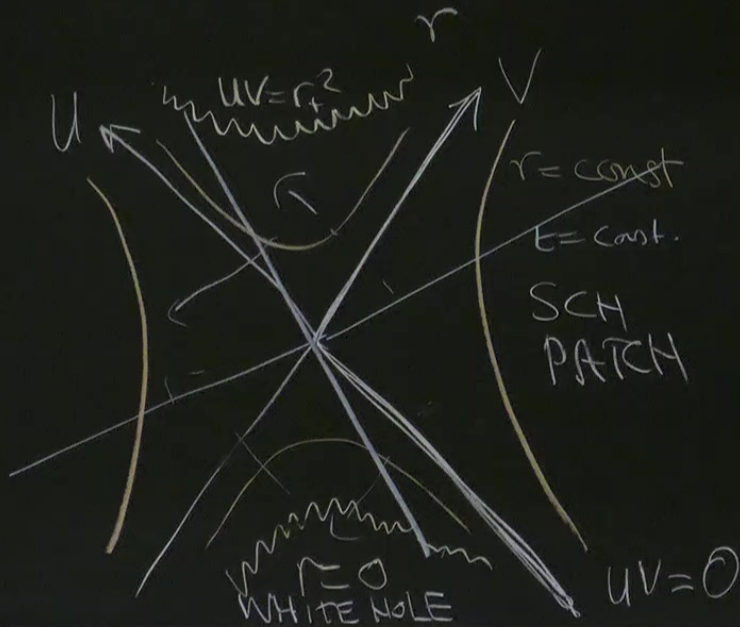 r
UV=r₊²
U
V
r=const
t=const.
SCH
PATCH
r=0
WHITE HOLE
UV=0